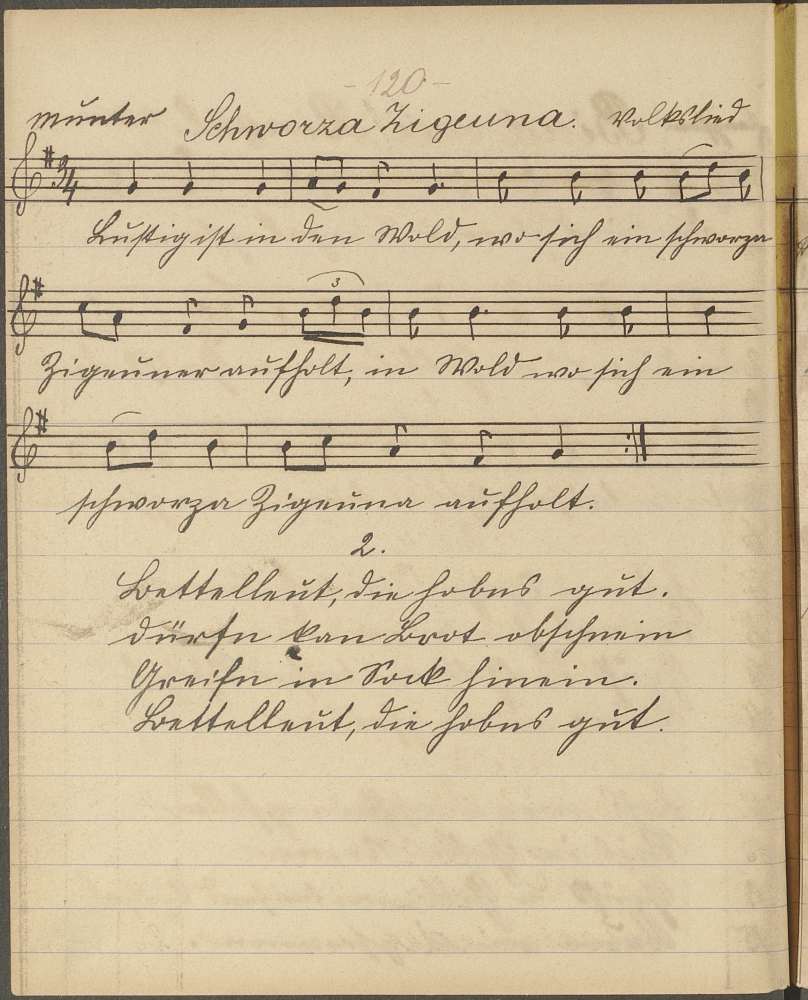 - 120 -
munter Schworza Zigeuna. Volkslied
3/4
Lustig ist in den Wold, wo sich ein schworza
3
Zigeuner aufholt, in Wold wo sich ein
schworza Zigeuna aufholt.
2.
Bettelleut, die hobns gut.
dürfn kan Brot obschnein
Greifn in Sock hinein.
Bettelleut, die hobns gut.